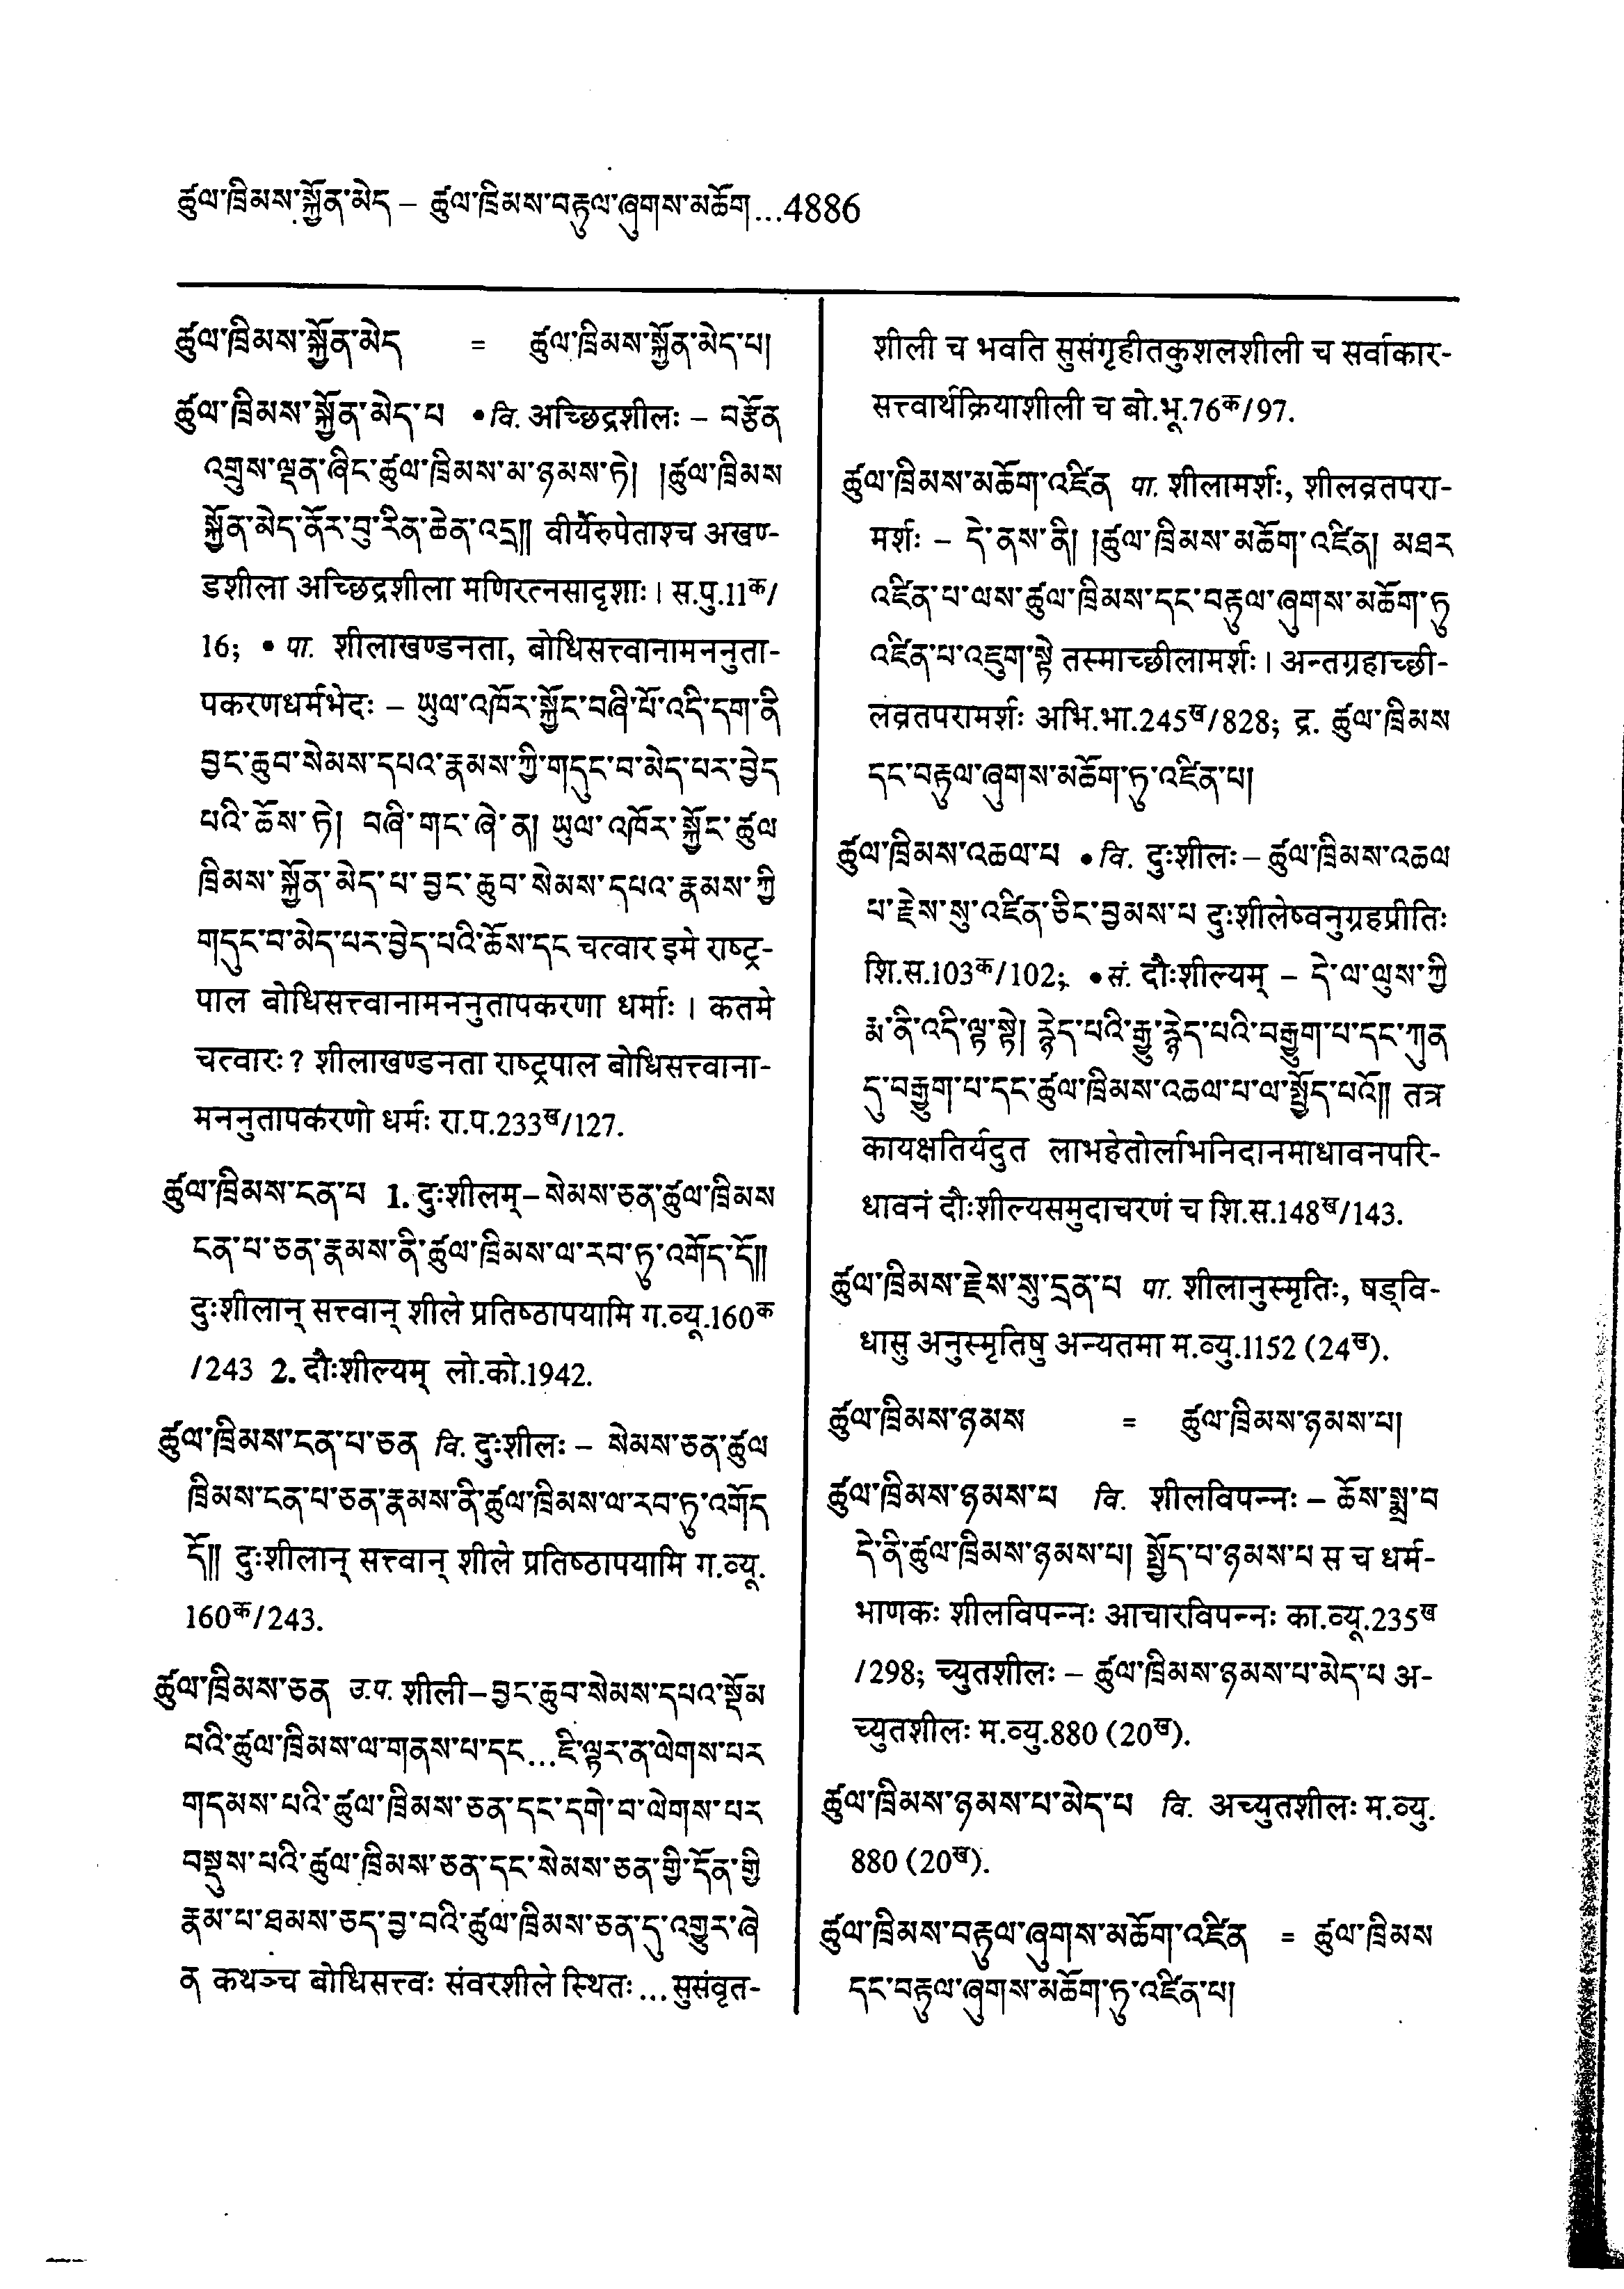 ཚུལ་ཁྲིམས་སྐྱོན་མེད – ཚུལ་ཁྲིམས་བརྟུལ་ཞུགས་མཆོག...4886
ཚུལ་ཁྲིམས་སྐྱོན་མེད = ཚུལ་ཁྲིམས་སྐྱོན་མེད་པ།
ཚུལ་ཁྲིམས་སྐྱོན་མེད་པ •वि. अच्छिद्रशीलः – བརྩོན
འགྲུས་ལྡན་ཞིང་ཚུལ་ཁྲིམས་མ་ཉམས་ཏེ། །ཚུལ་ཁྲིམས
སྐྱོན་མེད་ནོར་བུ་རིན་ཆེན་འདྲ།། वीर्यैरुपेताश्च अखण-
डशीला अच्छिद्रशीला मणिरत्नसादृशाः। स.पु.11क/
16; • पा. शीलाखण्डनता, बोधिसत्त्वानामननुता-
पकरणधर्मभेदः – ཡུལ་འཁོར་སྐྱོང་བཞི་པོ་འདི་དག་ནི
བྱང་ཆུབ་སེམས་དཔའ་རྣམས་ཀྱི་གདུང་བ་མེད་པར་བྱེད
པའི་ཆོས་ཏེ། བཞི་གང་ཞེ་ན། ཡུལ་འཁོར་སྐྱོང་ཚུལ
ཁྲིམས་སྐྱོན་མེད་པ་བྱང་ཆུབ་སེམས་དཔའ་རྣམས་ཀྱི
གདུང་བ་མེད་པར་བྱེད་པའི་ཆོས་དང चत्वार इमे राष्ट्र-
पाल बोधिसत्त्वानामननुतापकरणा धर्माः। कतमे
चत्वारः? शीलाखण्डनता राष्ट्रपाल बोधिसत्त्वाना-
मननुतापकरणो धर्मः रा.प.233ख/127.
ཚུལ་ཁྲིམས་ངན་པ 1. दुःशीलम् – སེམས་ཅན་ཚུལ་ཁྲིམས
ངན་པ་ཅན་རྣམས་ནི་ཚུལ་ཁྲིམས་ལ་རབ་ཏུ་འགོད་དོ།།
दुःशीलान् सत्त्वान् शीले प्रतिष्ठापयामि ग.व्यू.160क
/243 2. दौःशील्यम् लो.को.1942.
ཚུལ་ཁྲིམས་ངན་པ་ཅན वि. दुःशीलः – སེམས་ཅན་ཚུལ
ཁྲིམས་ངན་པ་ཅན་རྣམས་ནི་ཚུལ་ཁྲིམས་ལ་རབ་ཏུ་འགོད
དོ།། दुःशीलान् सत्त्वान् शीले प्रतिष्ठापयामि ग.व्यू.
160क/243.
ཚུལ་ཁྲིམས་ཅན उ.प. शीली – བྱང་ཆུབ་སེམས་དཔའ་སྡོམ
པའི་ཚུལ་ཁྲིམས་ལ་གནས་པ་དང...ཇི་ལྟར་ན་ལེགས་པར
གདམས་པའི་ཚུལ་ཁྲིམས་ཅན་དང་དགེ་བ་ལེགས་པར
བསྡུས་པའི་ཚུལ་ཁྲིམས་ཅན་དང་སེམས་ཅན་གྱི་དོན་གྱི
རྣམ་པ་ཐམས་ཅད་བྱ་བའི་ཚུལ་ཁྲིམས་ཅན་དུ་འགྱུར་ཞེ
ན कथञ्च बोधिसत्त्वः संवरशीले स्थितः...सुसंवृत-
शीली च भवति सुसंगृहीतकुशलशीली च सर्वाकार-
सत्त्वार्थक्रियाशीली च बो.भू.76क/97.
ཚུལ་ཁྲིམས་མཆོག་འཛིན पा. शीलामर्शः, शीलव्रतपरा-
मर्शः – དེ་ནས་ནི། །ཚུལ་ཁྲིམས་མཆོག་འཛིན། མཐར
འཛིན་པ་ལས་ཚུལ་ཁྲིམས་དང་བརྟུལ་ཞུགས་མཆོག་ཏུ
འཛིན་པ་འཇུག་སྟེ तस्माच्छीलामर्शः। अन्तग्रहाच्छी-
लव्रतपरामर्शः अभि.भा.245ख/828; द्र. ཚུལ་ཁྲིམས
དང་བརྟུལ་ཞུགས་མཆོག་ཏུ་འཛིན་པ།
ཚུལ་ཁྲིམས་འཆལ་པ •वि. दुःशीलः – ཚུལ་ཁྲིམས་འཆལ
པ་རྗེས་སུ་འཛིན་ཅིང་བྱམས་པ दुःशीलेष्वनुग्रहप्रीतिः
शि.स.103क/102; •सं. दौःशील्यम् – དེ་ལ་ལུས་ཀྱི
རྨ་ནི་འདི་ལྟ་སྟེ། རྙེད་པའི་རྒྱུ་རྙེད་པའི་བརྒྱུག་པ་དང་ཀུན
དུ་བརྒྱུག་པ་དང་ཚུལ་ཁྲིམས་འཆལ་པ་ལ་སྤྱོད་པའོ།། तत्र
कायक्षतिर्यदुत लाभहेतोर्लाभनिदानमाधावनपरि-
धावनं दौःशील्यसमुदाचरणं च शि.स.148ख/143.
ཚུལ་ཁྲིམས་རྗེས་སུ་དྲན་པ पा. शीलानुस्मृतिः, षड्वि-
धासु अनुस्मृतिषु अन्यतमा म.व्यु.1152 (24ख).
ཚུལ་ཁྲིམས་ཉམས = ཚུལ་ཁྲིམས་ཉམས་པ།
ཚུལ་ཁྲིམས་ཉམས་པ वि. शीलविपन्नः – ཆོས་སྨྲ་བ
དེ་ནི་ཚུལ་ཁྲིམས་ཉམས་པ། སྤྱོད་པ་ཉམས་པ स च धर्म-
भाणकः शीलविपन्नः आचारविपन्नः का.व्यू.235ख
/298; च्युतशीलः – ཚུལ་ཁྲིམས་ཉམས་པ་མེད་པ अ-
च्युतशीलः म.व्यु.880 (20ख).
ཚུལ་ཁྲིམས་ཉམས་པ་མེད་པ वि. अच्युतशीलः म.व्यु.
880 (20ख).
ཚུལ་ཁྲིམས་བརྟུལ་ཞུགས་མཆོག་འཛིན = ཚུལ་ཁྲིམས
དང་བརྟུལ་ཞུགས་མཆོག་ཏུ་འཛིན་པ།